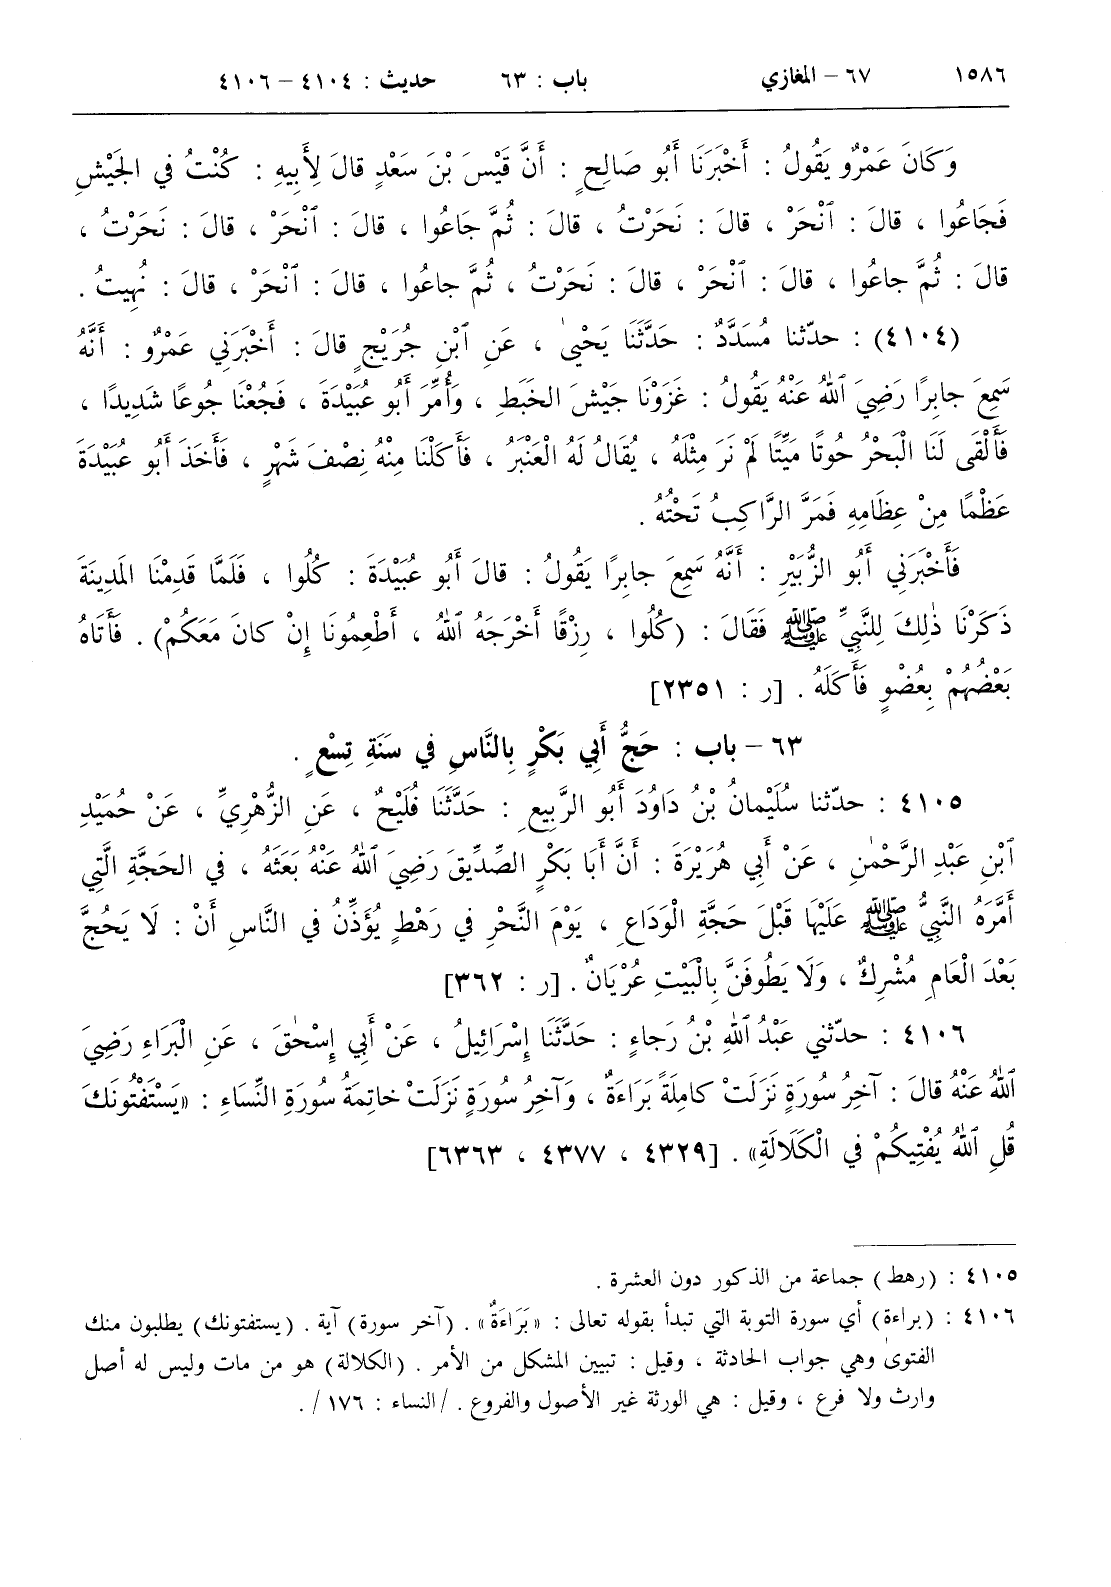 ١٥٨٦ ٦٧ – المغازي باب : ٦٣ حديث : ٤١٠٤ – ٤١٠٦
وَكَانَ عَمْرٌو يَقُولُ : أَخْبَرَنَا أَبُو صَالِحٍ : أَنَّ قَيْسَ بْنَ سَعْدٍ قالَ لِأَبِيهِ : كُنْتُ في الجَيْشِ
فَجَاعُوا ، قالَ : ٱنْحَرْ ، قالَ : نَحَرْتُ ، قالَ : ثُمَّ جَاعُوا ، قالَ : ٱنْحَرْ ، قالَ : نَحَرْتُ ،
قالَ : ثُمَّ جاعُوا ، قالَ : ٱنْحَرْ ، قالَ : نَحَرْتُ ، ثُمَّ جاعُوا ، قالَ : ٱنْحَرْ ، قالَ : نُهِيتُ .
(٤١٠٤) : حدّثنا مُسَدَّدٌ : حَدَّثَنَا يَحْيىٰ ، عَنِ ٱبْنِ جُرَيْجٍ قالَ : أَخْبَرَنِي عَمْرٌو : أَنَّهُ
سَمِعَ جابِرًا رَضِيَ ٱللهُ عَنْهُ يَقُولُ : غَزَوْنَا جَيْشَ الخَبَطِ ، وَأُمِّرَ أَبُو عُبَيْدَةَ ، فَجُعْنَا جُوعًا شَدِيدًا ،
فَأَلْقَى لَنَا الْبَحْرُ حُوتًا مَيِّتًا لَمْ نَرَ مِثْلَهُ ، يُقَالُ لَهُ الْعَنْبَرُ ، فَأَكَلْنَا مِنْهُ نِصْفَ شَهْرٍ ، فَأَخَذَ أَبُو عُبَيْدَةَ
عَظْمًا مِنْ عِظَامِهِ فَمَرَّ الرَّاكِبُ تَحْتَهُ .
فَأَخْبَرَنِي أَبُو الزُّبَيْرِ : أَنَّهُ سَمِعَ جابِرًا يَقُولُ : قالَ أَبُو عُبَيْدَةَ : كُلُوا ، فَلَمَّا قَدِمْنَا المَدِينَةَ
ذَكَرْنَا ذٰلِكَ لِلنَّبِيِّ ﷺ فَقَالَ : (كُلُوا ، رِزْقًا أَخْرَجَهُ ٱللهُ ، أَطْعِمُونَا إِنْ كانَ مَعَكُمْ) . فَأَتَاهُ
بَعْضُهُمْ بِعُضْوٍ فَأَكَلَهُ . [ر : ٢٣٥١]
٦٣ – باب : حَجُّ أَبِي بَكْرٍ بِالنَّاسِ فِي سَنَةِ تِسْعٍ .
٤١٠٥ : حدّثنا سُلَيْمانُ بْنُ دَاوُدَ أَبُو الرَّبِيعِ : حَدَّثَنَا فُلَيْحٌ ، عَنِ الزُّهْرِيِّ ، عَنْ حُمَيْدِ
ٱبْنِ عَبْدِ الرَّحْمٰنِ ، عَنْ أَبِي هُرَيْرَةَ : أَنَّ أَبَا بَكْرٍ الصِّدِّيقَ رَضِيَ ٱللهُ عَنْهُ بَعَثَهُ ، في الحَجَّةِ الَّتِي
أَمَّرَهُ النَّبِيُّ ﷺ عَلَيْهَا قَبْلَ حَجَّةِ الْوَدَاعِ ، يَوْمَ النَّحْرِ في رَهْطٍ يُؤَذِّنُ في النَّاسِ أَنْ : لَا يَحُجَّ
بَعْدَ الْعَامِ مُشْرِكٌ ، وَلَا يَطُوفَنَّ بِالْبَيْتِ عُرْيَانٌ . [ر : ٣٦٢]
٤١٠٦ : حدّثني عَبْدُ ٱللهِ بْنُ رَجاءٍ : حَدَّثَنَا إِسْرَائِيلُ ، عَنْ أَبِي إِسْحٰقَ ، عَنِ الْبَرَاءِ رَضِيَ
ٱللهُ عَنْهُ قالَ : آخِرُ سُورَةٍ نَزَلَتْ كامِلَةً بَرَاءَةٌ ، وَآخِرُ سُورَةٍ نَزَلَتْ خاتِمَةُ سُورَةِ النِّسَاءِ : «يَسْتَفْتُونَكَ
قُلِ ٱللهُ يُفْتِيكُمْ فِي الْكَلَالَةِ» . [٤٣٢٩ ، ٤٣٧٧ ، ٦٣٦٣]
٤١٠٥ : (رهط) جماعة من الذكور دون العشرة .
٤١٠٦ : (براءة) أي سورة التوبة التي تبدأ بقوله تعالى : «بَرَاءَةٌ» . (آخر سورة) آية . (يستفتونك) يطلبون منك
الفتوىٰ وهي جواب الحادثة ، وقيل : تبيين المشكل من الأمر . (الكلالة) هو من مات وليس له أصل
وارث ولا فرع ، وقيل : هي الورثة غير الأصول والفروع . /النساء : ١٧٦/ .